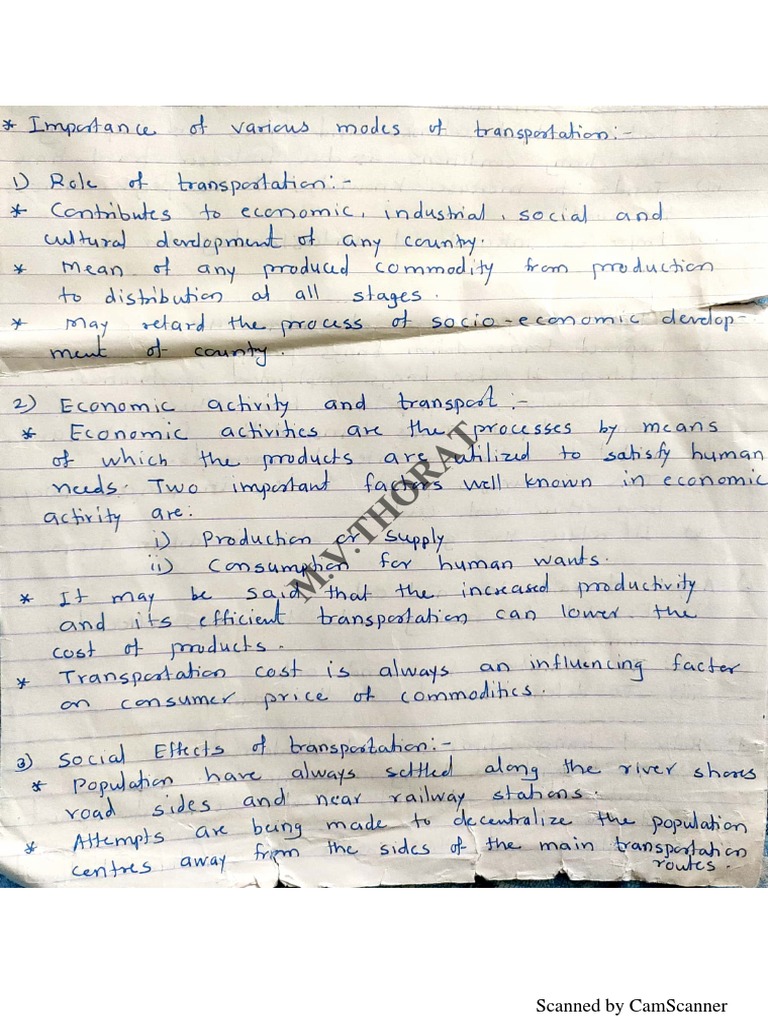 * Importance of various modes of transportation:-
1) Role of transportation:-
* Contributes to economic, industrial, social and
cultural development of any country.
* Mean of any produced commodity from production
to distribution at all stages.
* May retard the process of socio-economic develop-
ment of county.
2) Economic activity and transport:-
* Economic activities are the processes by means
of which the products are utilized to satisfy human
needs. Two important factors well known in economic
activity are:
i) Production or supply
ii) Consumption for human wants.
* It may be said that the increased productivity
and its efficient transportation can lower the
cost of products.
* Transportation cost is always an influencing factor
on consumer price of commodities.
3) Social Effects of transportation:-
* Population have always settled along the river shores
road sides and near railway stations.
* Attempts are being made to decentralize the population
centres away from the sides of the main transportation
routes.
M.V.THORAT
Scanned by CamScanner